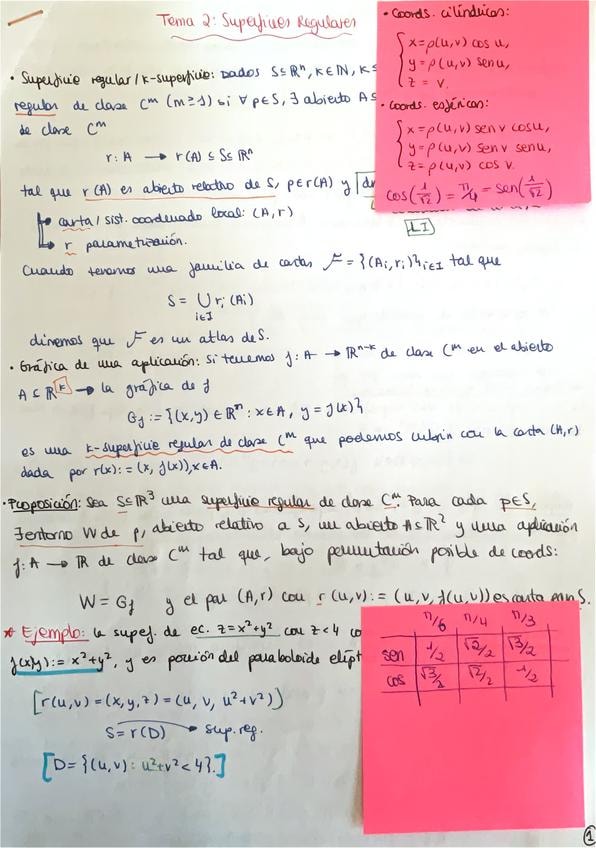 Tema 2: Superficies Regulares
• Superficie regular / k-superficie: Dados S⊆ℝⁿ, k∈ℕ, k≤
regular de clase Cᵐ (m≥1) si ∀ p∈S, ∃ abierto A⊆
de clase Cᵐ
r: A → r(A) ⊆ S⊆ℝⁿ
tal que r(A) es abierto relativo de S, p∈r(A) y
carta / sist. coordenado local: (A, r)
LI
r parametización.
Cuando tenemos una familia de cartas F = {(Aᵢ, rᵢ)}ᵢ∈I tal que
S = ⋃ rᵢ(Aᵢ)
i∈I
diremos que F es un atlas de S.
• Gráfica de una aplicación: si tenemos f: A → ℝⁿ⁻ᵏ de clase Cᵐ en el abierto
A ⊆ ℝᵏ → la gráfica de f
G_f := {(x,y) ∈ ℝⁿ : x∈A, y = f(x)}
es una k-superficie regular de clase Cᵐ que podemos cubrir con la carta (A,r)
dada por r(x) := (x, f(x)), x∈A.
• Proposición: Sea S⊆ℝ³ una superficie regular de clase Cᵐ. Para cada p∈S,
∃ entorno W de p, abierto relativo a S, un abierto A⊆ℝ² y una aplicación
f: A → ℝ de clase Cᵐ tal que, bajo permutación posible de coords:
W = G_f y el par (A, r) con r(u,v) := (u, v, f(u,v)) es carta en S.
* Ejemplo: la supef. de ec. z=x²+y² con z<4 co
f(x,y) := x²+y², y es porción del paraboloide elípt
[r(u,v) = (x,y,z) = (u, v, u²+v²)]
S = r(D) → sup. reg.
[D = {(u,v) : u²+v² < 4}.]
• Coords. cilíndricas:
x = ρ(u,v) cos u,
y = ρ(u,v) sen u,
z = v.
• Coords. esféricas:
x = ρ(u,v) sen v cos u,
y = ρ(u,v) sen v sen u,
z = ρ(u,v) cos v.
cos(1/√2) = π/4 = sen(1/√2)
π/6 π/4 π/3
sen 1/2 √2/2 √3/2
cos √3/2 √2/2 1/2
1